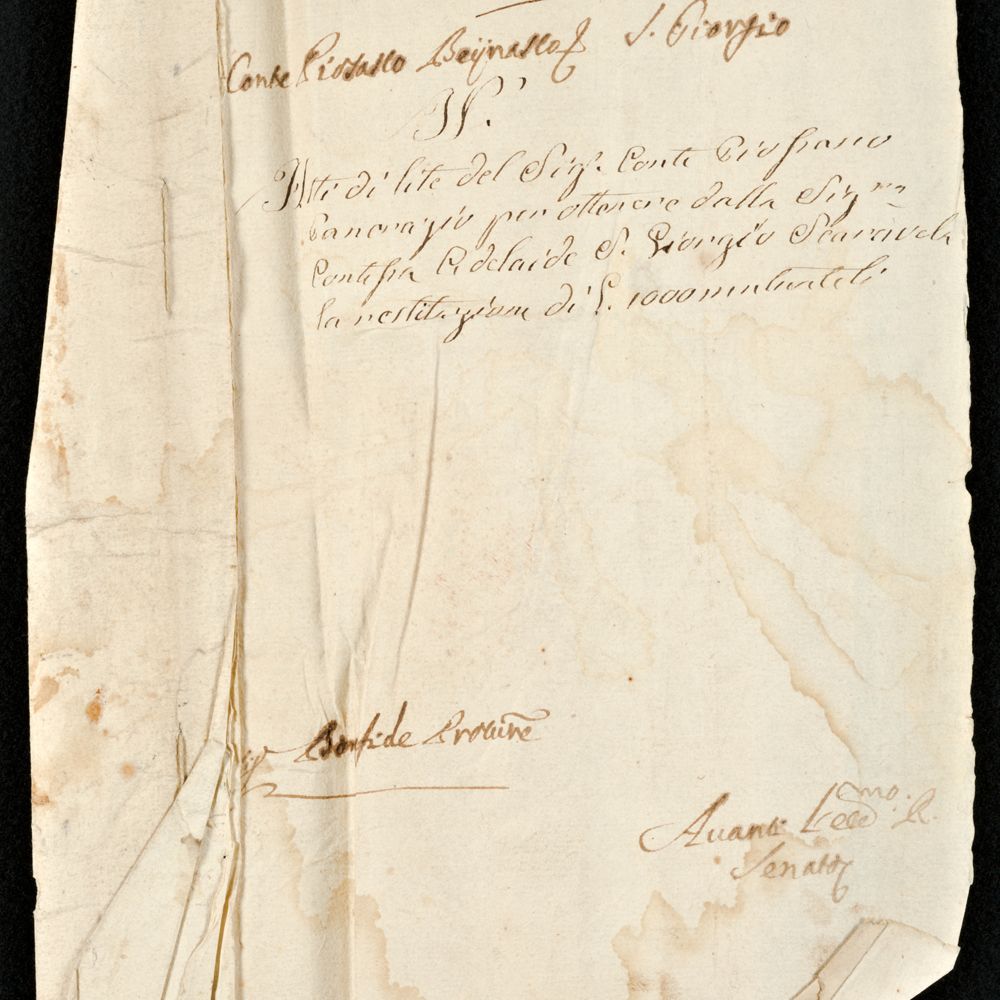 Conte Piosasco Beijnasco S. Giorgio
N.
Atti di lite del Sig.r Conte Piossano
Pancrazio per ottenere dalla Sig.ra
Contessa Adelaide S. Giorgio Scaravela
la restituzione di L. 1000 mutuateli
Sig.r Bonfide Procure
Avanti l'Ecc.mo R.
Senato